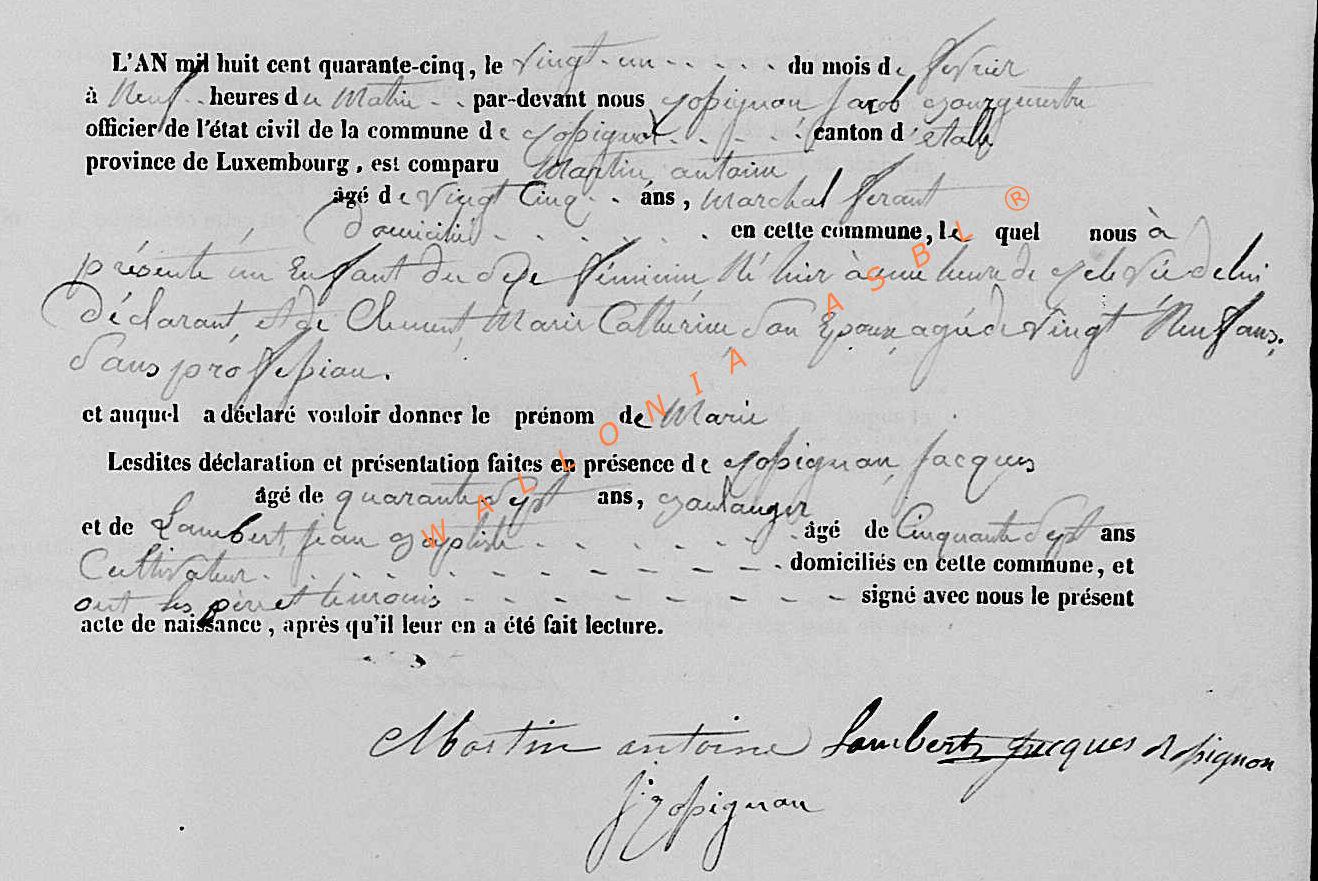 L'AN mil huit cent quarante-cinq, le vingt-un - - - - - du mois de fevrier
à Neuf - - heures du Matin - - par-devant nous Rossignon Jacob Bourguemetre
officier de l'état civil de la commune de Rossignol - - - - - canton d'étalle
province de Luxembourg, est comparu Martin antoine
âgé de vingt Cinq - - ans, Marchal ferant
domicilié - - - - - - en cette commune, le quel nous à
présenté un Enfant du Sexe féminin, Né hier à une heure de relevée de lui
Déclarant, et de Clement, Marie Catherine, Son Epoux, agée de vingt Neuf ans,
Sans profession.
et auquel a déclaré vouloir donner le prénom de Marie
Lesdites déclaration et présentation faites en présence de Rossignon, Jacques
âgé de quarante Sept ans, Boulanger
et de Lambert, jean Baptiste - - - - - - - âgé de Cinquante Sept ans
Cultivateur - - - - - - - - - - - domiciliés en cette commune, et
ont les père et temoins - - - - - - - - - signé avec nous le présent
acte de naissance, après qu'il leur en a été fait lecture.
WALLONIA ASBL ®
Martin antoine Lambert Jacques Rossignon
J Rossignon